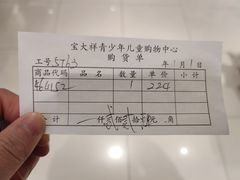 宝大祥青少年儿童购物中心
购 货 单
工号5763 年1月1日
商品代码 品 名 数量 单价 小 计
464152 1 224
合 计 仟贰佰贰拾 元 角